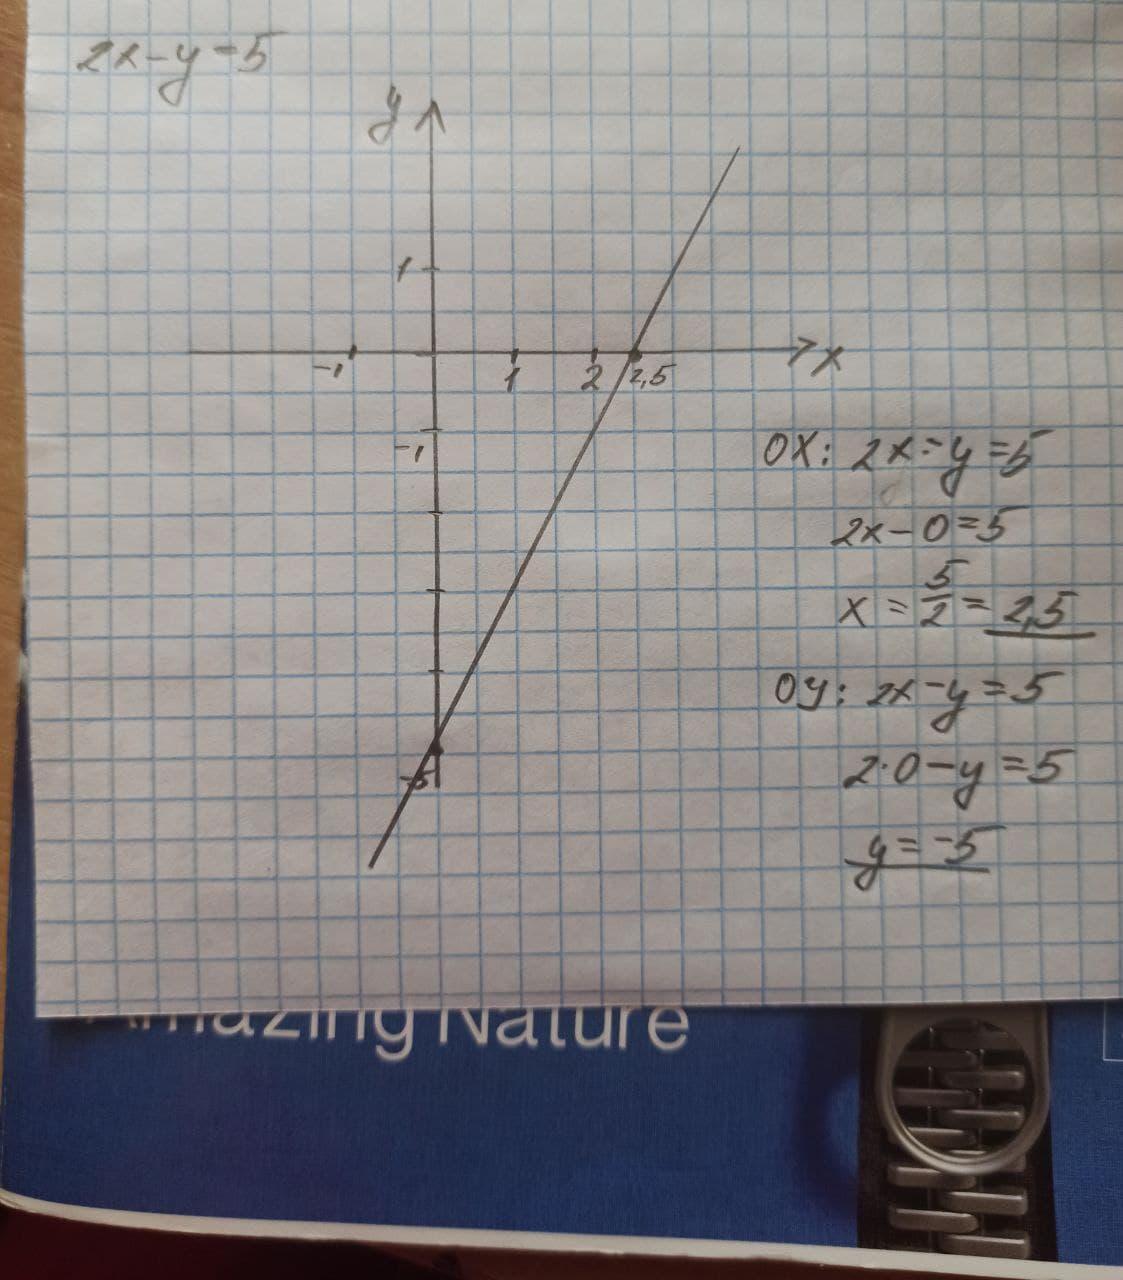 2x-y=5
y
1
-1 1 2 2,5 x
-1
OX: 2x-y=5
2x-0=5
x = 5/2 = 2,5
OY: 2x-y=5
2·0-y=5
-5
y=-5
Amazing Nature